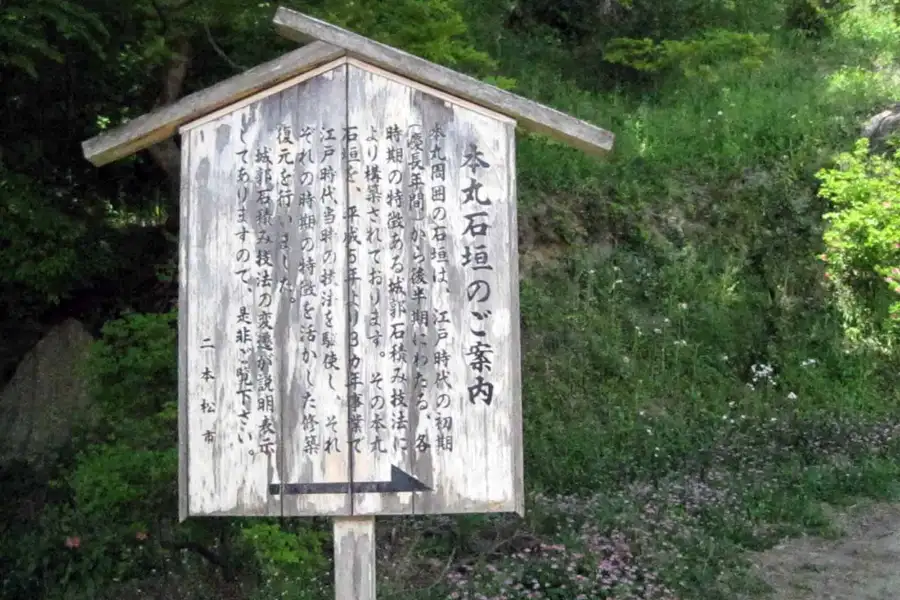 本丸石垣のご案内
本丸周囲の石垣は、江戸時代の初期
(慶長年間)から後半期にわたる、各
時期の特徴ある城郭石積み技法に
より構築されております。その本丸
石垣を、平成5年より3カ年事業で
江戸時代当時の技法を駆使し、それ
ぞれの時期の特徴を活かした修築
復元を行いました。
城郭石積み技法の変遷が説明表示
してありますので、是非ご覧下さい。
二本松市